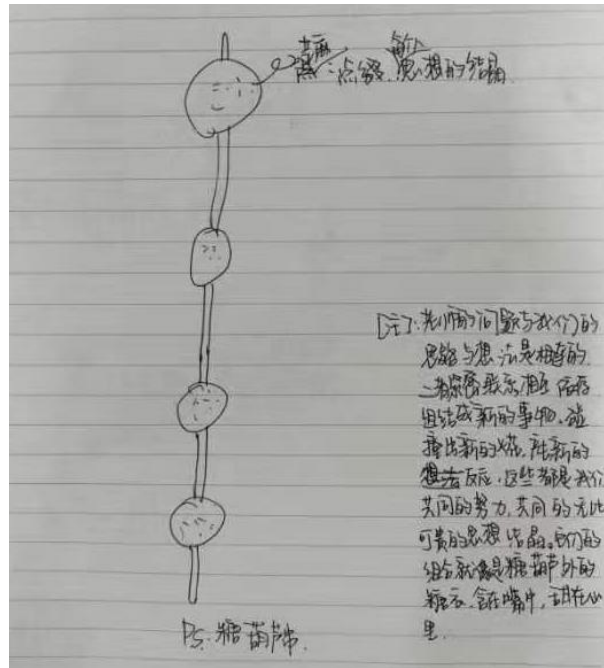 芝麻：点缀、思想的结晶
[注]：老师的问题与我们的
思路与想法是相连的，
二者紧密联系相互依存
组结成新的事物，碰
撞出新的火花，产新的
想法反应，这些都是我们
共同的努力，共同的无比
可贵的思想结晶。它们的
组合就像是糖葫芦外的
糖衣，含在嘴中，甜在心
里.
PS: 糖葫芦串.